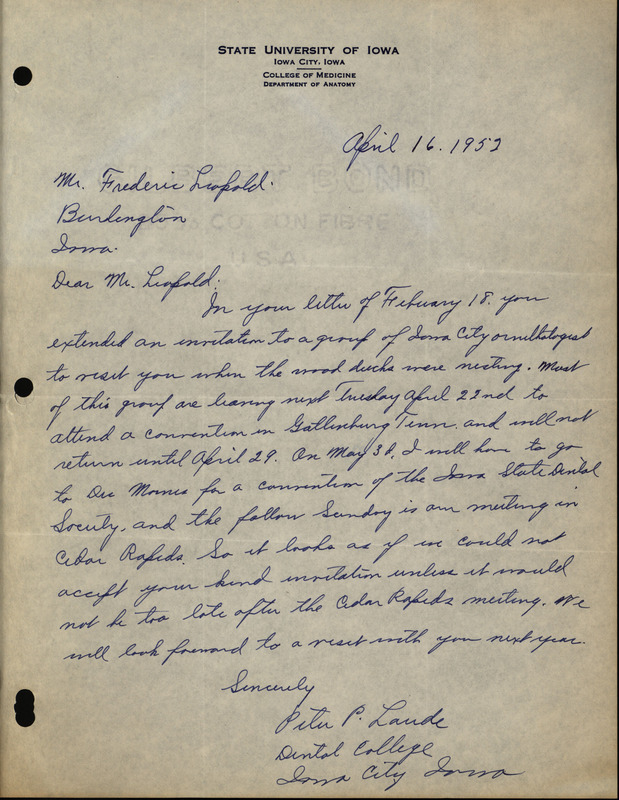 STATE UNIVERSITY OF IOWA
IOWA CITY, IOWA
COLLEGE OF MEDICINE
DEPARTMENT OF ANATOMY
April 16. 1952
Mr. Frederic Leopold.
Burlington
Iowa.
Dear Mr. Leopold:
In your letter of February 18. you
extended an invitation to a group of Iowa City ornithologist
to visit you when the wood ducks were nesting. Most
of this group are leaving next Tuesday April 22nd to
attend a convention in Gatlenburg Tenn. and will not
return until April 29. On May 3d, I will have to go
to Des Moines for a convention of the Iowa State Dental
Society, and the follow Sunday is our meeting in
Cedar Rapids. So it looks as if we could not
accept your kind invitation unless it would
not be too late after the Cedar Rapids meeting. We
will look forward to a visit with you next year.
Sincerely
Peter P. Laude
Dental College
Iowa City Iowa
BOND
COTTON FIBRE
USA